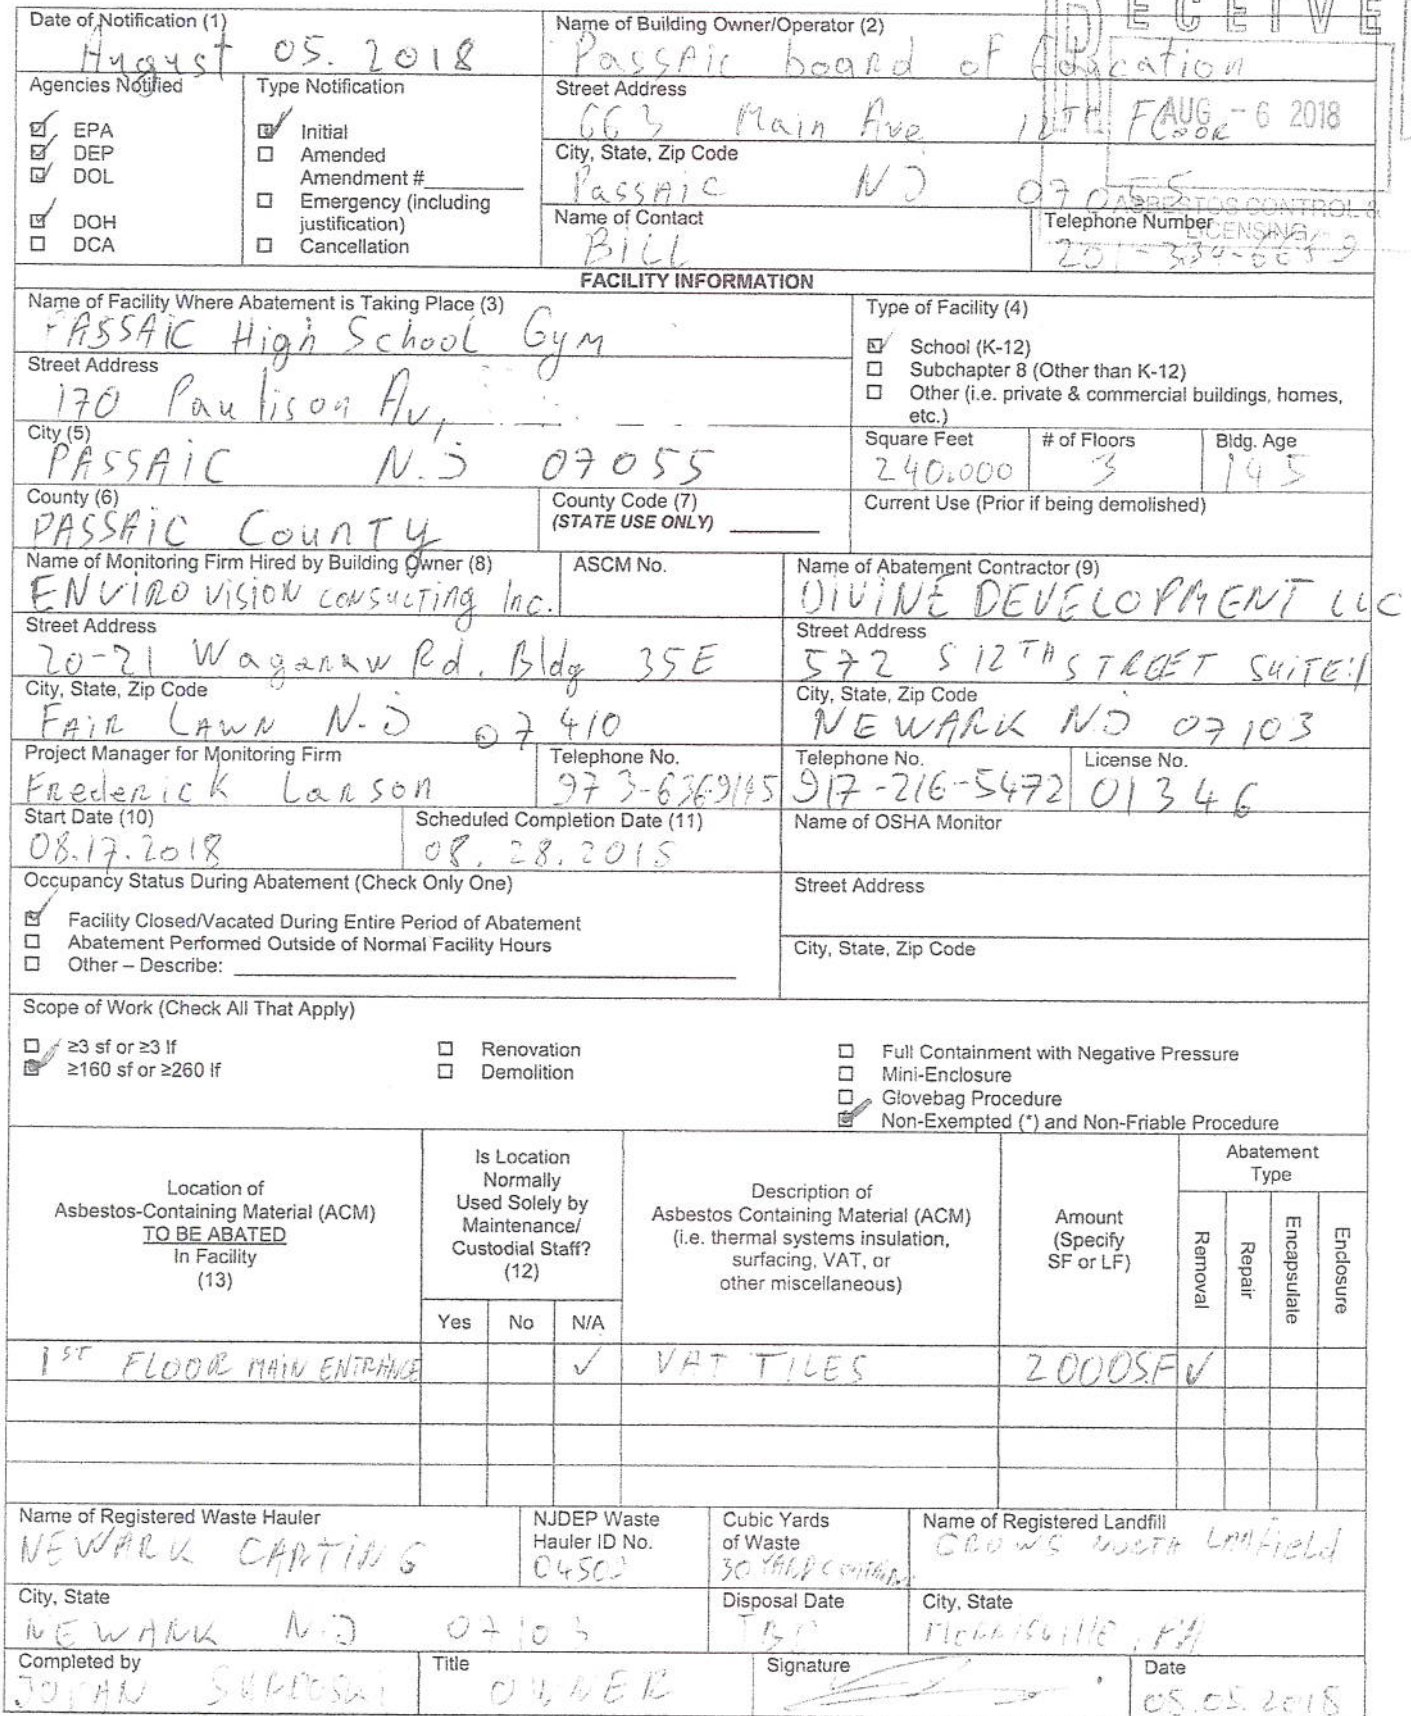 RECEIVE
AUG - 6 2018
ASBESTOS CONTROL &
LICENSING
Date of Notification (1)
August 05. 2018
Name of Building Owner/Operator (2)
Passaic board of Education
Agencies Notified
EPA
DEP
DOL
DOH
DCA
Type Notification
Initial
Amended
Amendment #
Emergency (including
justification)
Cancellation
Street Address
663 Main Ave 12TH Floor
City, State, Zip Code
Passaic NJ 07055
Name of Contact
BILL
Telephone Number
FACILITY INFORMATION
Name of Facility Where Abatement is Taking Place (3)
PASSAIC High School Gym
Type of Facility (4)
School (K-12)
Subchapter 8 (Other than K-12)
Other (i.e. private & commercial buildings, homes,
etc.)
Street Address
170 Paulison Av,
City (5)
PASSAIC N.J 07055
Square Feet
240.000
# of Floors
3
Bldg. Age
145
County (6)
PASSAIC County
County Code (7)
(STATE USE ONLY)
Current Use (Prior if being demolished)
Name of Monitoring Firm Hired by Building Owner (8)
ENVIRO VISION CONSULTING Inc.
ASCM No.
Name of Abatement Contractor (9)
DIVINE DEVELOPMENT LLC
Street Address
20-21 Waganaw Rd. Bldg 35E
Street Address
572 S 12TH STREET SUITE:1
City, State, Zip Code
FAIR LAWN N.J 07410
City, State, Zip Code
NEWARK NJ 07103
Project Manager for Monitoring Firm
Frederick Larson
Telephone No.
973-6369145
Telephone No.
917-216-5472
License No.
01346
Start Date (10)
08.17.2018
Scheduled Completion Date (11)
08. 28. 2018
Name of OSHA Monitor
Occupancy Status During Abatement (Check Only One)
Facility Closed/Vacated During Entire Period of Abatement
Abatement Performed Outside of Normal Facility Hours
Other – Describe:
Street Address
City, State, Zip Code
Scope of Work (Check All That Apply)
≥3 sf or ≥3 lf
≥160 sf or ≥260 lf
Renovation
Demolition
Full Containment with Negative Pressure
Mini-Enclosure
Glovebag Procedure
Non-Exempted (*) and Non-Friable Procedure
Location of
Asbestos-Containing Material (ACM)
TO BE ABATED
In Facility
(13)
Is Location
Normally
Used Solely by
Maintenance/
Custodial Staff?
(12)
Yes No N/A
Description of
Asbestos Containing Material (ACM)
(i.e. thermal systems insulation,
surfacing, VAT, or
other miscellaneous)
Amount
(Specify
SF or LF)
Abatement
Type
Removal
Repair
Encapsulate
Enclosure
1ST FLOOR MAIN ENTRANCE ✓ VAT TILES 2000SF ✓
Name of Registered Waste Hauler
NEWARK CARTING
NJDEP Waste
Hauler ID No.
Cubic Yards
of Waste
30 YARD
Name of Registered Landfill
CROWS NORTH Landfield
City, State
NEWARK NJ 07103
Disposal Date
City, State
Morrisville, PA
Completed by
Title
OWNER
Signature
Date
08.05.2018